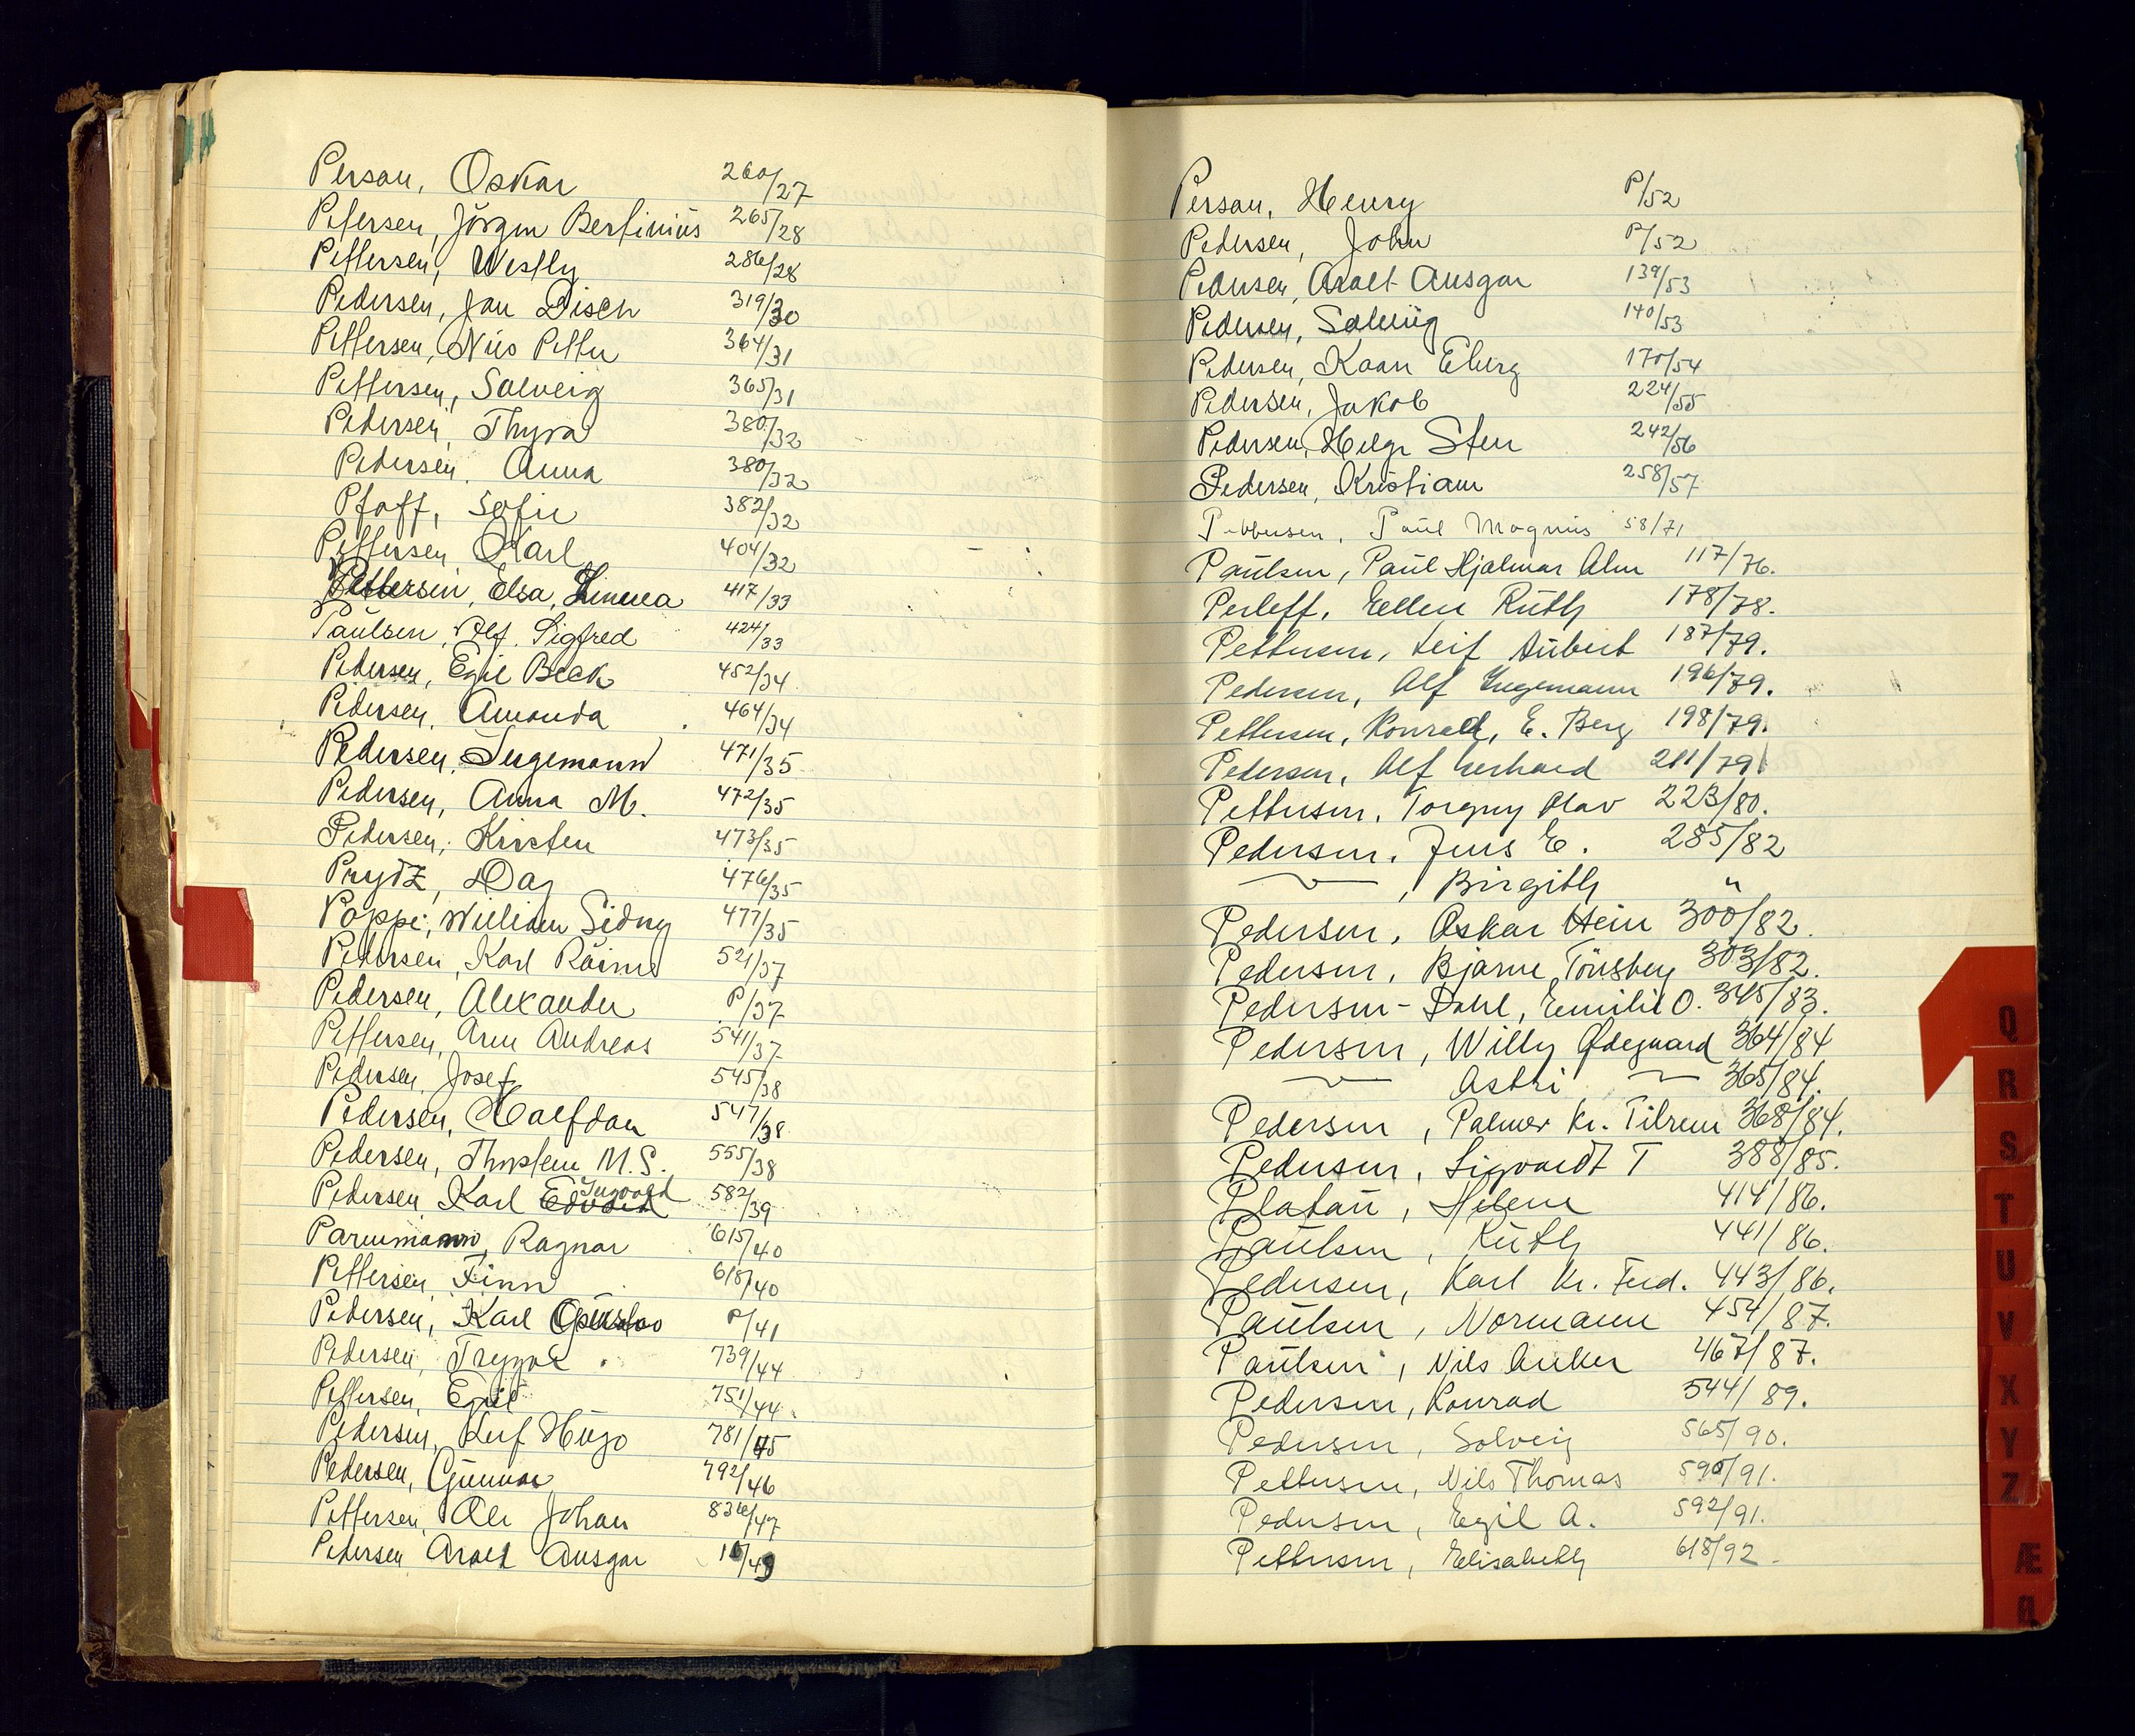 Person, Oskar 260/27
Petersen, Jörgen Bertinius 265/28
Pettersen, Westly 286/28
Pedersen, Jan Disch 319/30
Pettersen, Nils Petter 364/31
Pettersen, Solveig 365/31
Pedersen, Thyra 380/32
Pedersen, Anna 380/32
Pfaff, Sofie 382/32
Pettersen, Karl 404/32
Pettersen, Elsa, Linnea 417/33
Paulsen, Alf. Sigfred 424/33
Pedersen, Egil Beck 452/34
Pedersen, Amanda 464/34
Pedersen, Ingemann 471/35
Pedersen, Anna M. 472/35
Pedersen, Kirsten 473/35
Prydz, Dag 476/35
Poppe, William Sidny 477/35
Pedersen, Karl 521/37
Pedersen, Alexander P/37
Pettersen, Arne Andreas 541/37
Pedersen, Josef 545/38
Pedersen, Halfdan 547/38
Pedersen, Thorleif M.S. 555/38
Pedersen, Karl Edvard Ingvald 582/39
Parummann, Ragnar 615/40
Pettersen, Finn 618/40
Pedersen, Karl P/41
Pedersen, Trygve 739/44
Pettersen, Egil 751/44
Pedersen, Leif Hugo 781/45
Pedersen, Gunnar 792/46
Pettersen, Ole Johan 836/47
Pedersen Aralt Ansgar /49
Person, Henry P/52
Pedersen, John P/52
Pedersen, Aralt Ansgar 139/53
Pedersen, Solveig 140/53
Pedersen, Kaare Eberg 170/54
Pedersen, Jakob 224/55
Pedersen, Helge Sten 242/56
Pedersen, Kristian 258/57
Pettersen, Paul Magnus 58/71
Paulsen, Paul Hjalmar Alm 117/76.
Perleff, Ellen Ruth 178/78.
Pettersen, Leif Aubert 187/79.
Pedersen, Alf Ingemann 196/79.
Pettersen, Konrad, E. Berg 198/79.
Pedersen, Alf Gerhard 211/79.
Pettersen, Torgny Olav 223/80.
Pedersen, Jens E. 285/82
— , Birgith "
Pedersen, Oskar Hein 300/82.
Pedersen, Bjarne Tönsberg 303/82.
Pedersen-Dahl, Emilie O. 345/83.
Pedersen, Willy Ødegaard 364/84
— Astri — 365/84.
Pedersen, Palmer Kr. Tilrem 368/84.
Pedersen, Sigvardt T 388/85.
Platau, Helene 414/86.
Paulsen, Ruth 441/86.
Pedersen, Karl Kr. Ferd. 443/86.
Paulsen, Normann 454/87.
Paulsen, Nils Anker 467/87.
Pedersen, Konrad 544/89.
Pedersen, Solveig 565/90.
Pettersen, Nils Thomas 590/91.
Pedersen, Egil A. 592/91.
Pettersen, Elisabeth 618/92.
Q
R
S
T
U
V
X
Y
Z
Æ